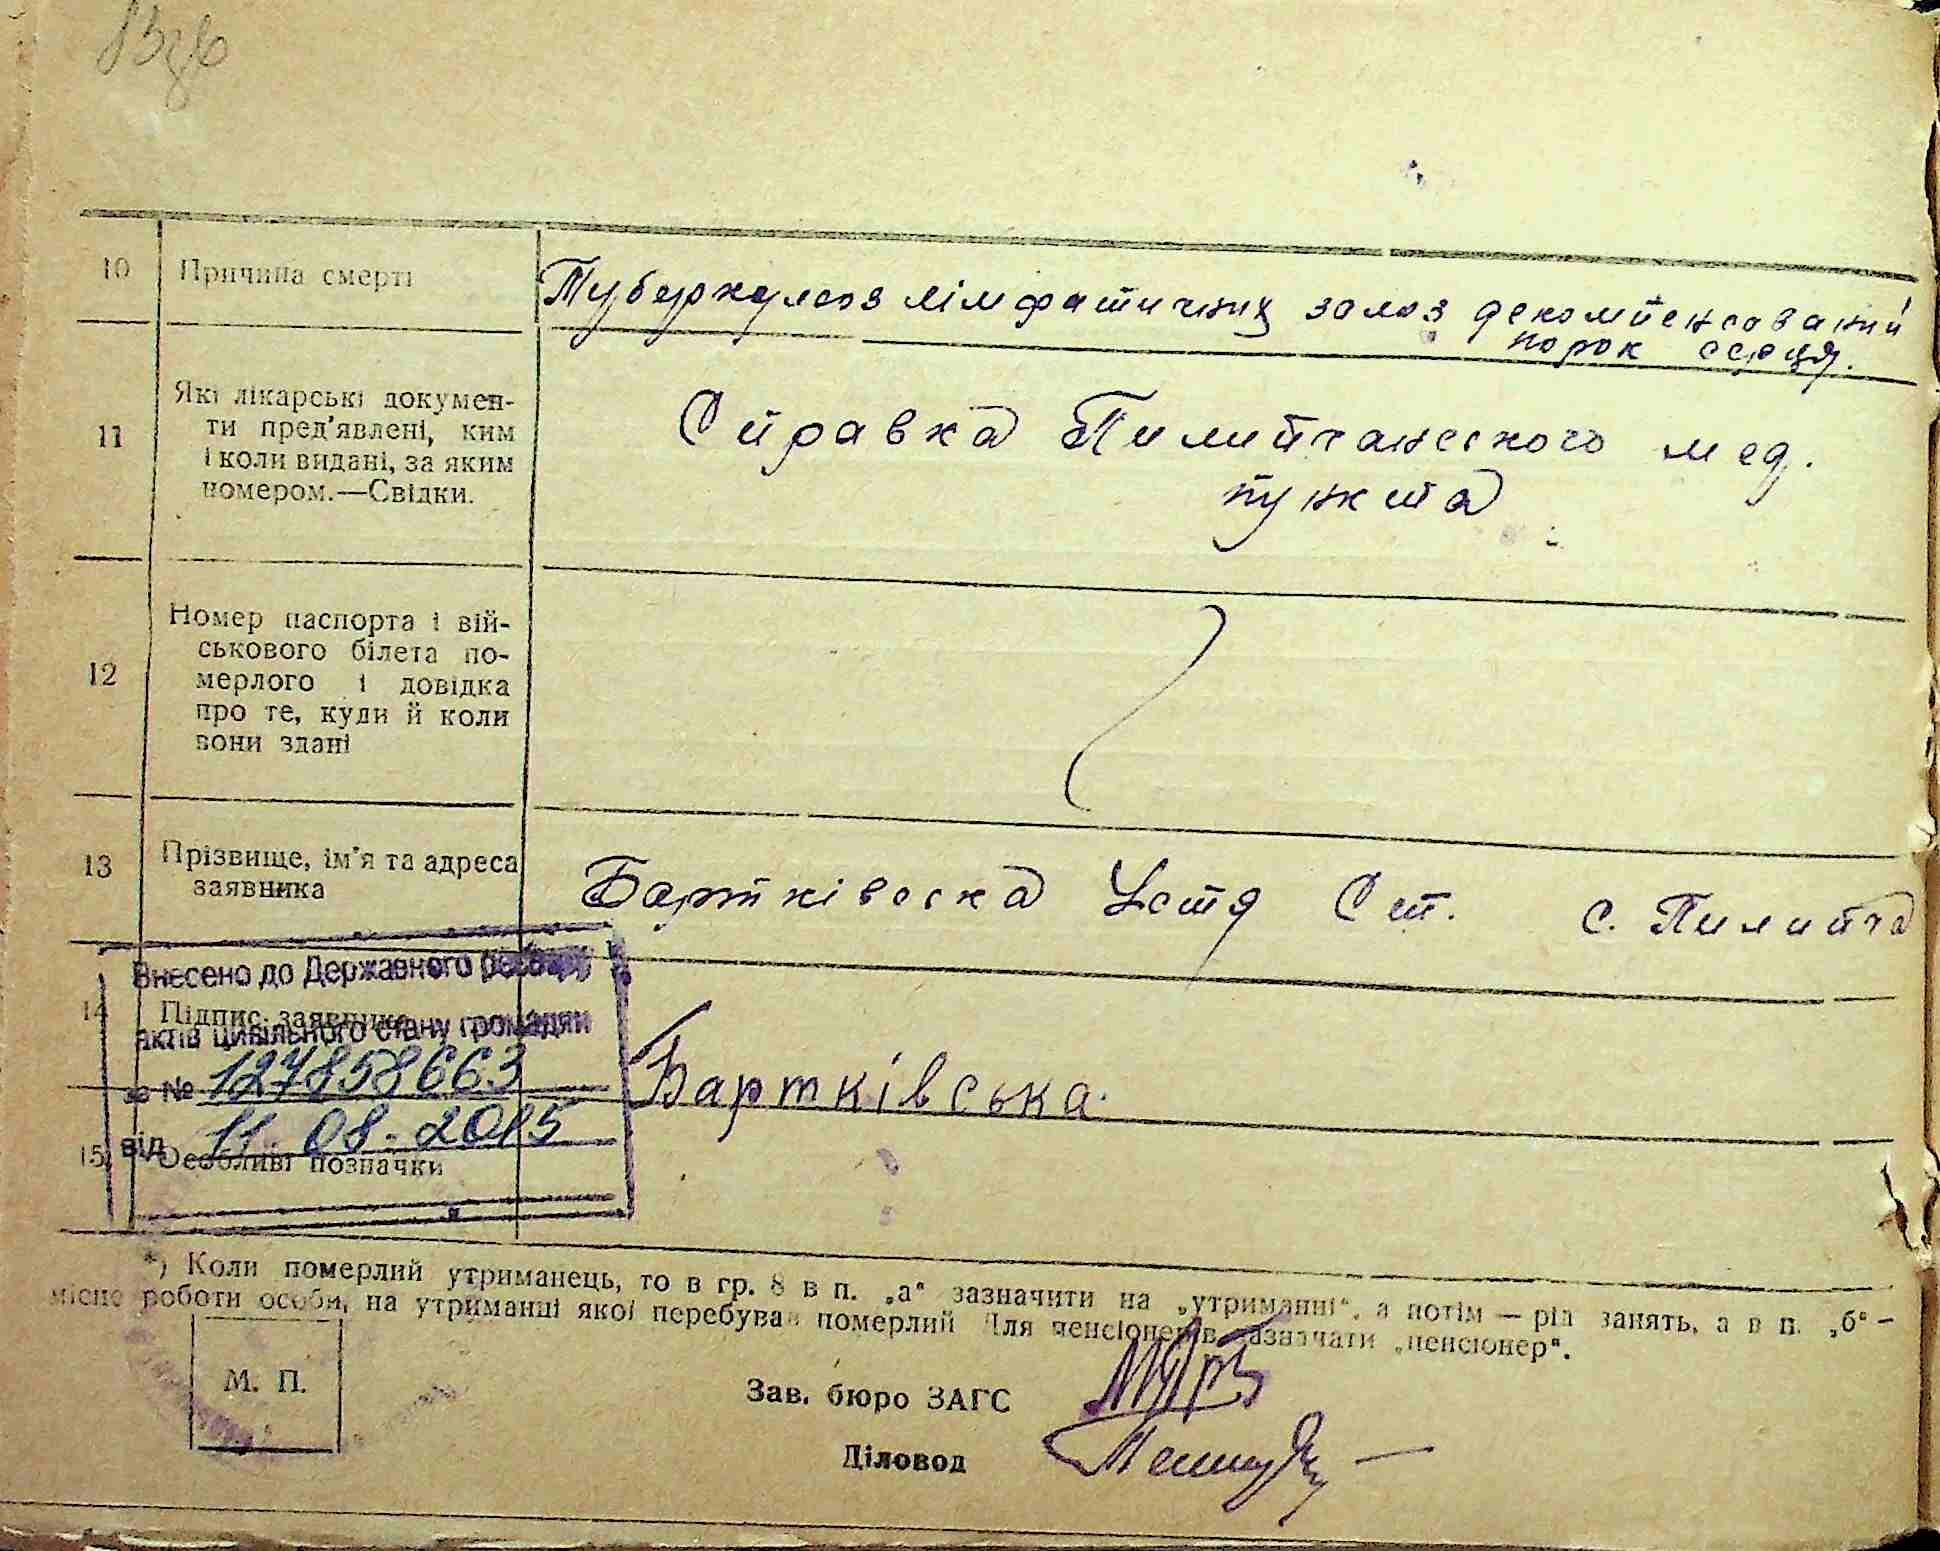 10 Причина смерті
Туберкульоз лімфатичних залоз декомпенсований
порок серця.
11 Які лікарські докумен-
ти пред'явлені, ким
і коли видані, за яким
номером.—Свідки.
Справка Пилипчанского мед.
пункта
12 Номер паспорта і вій-
ськового білета по-
мерлого і довідка
про те, куди й коли
вони здані
13 Прізвище, ім'я та адреса
заявника
Бартківська Устя Ст. с. Пилипча
Внесено до Державного реєстру
14 Підпис заявника
актів цивільного стану громадян
за № 127858663
Бартківська
від 11.08.2015
15 Особливі позначки
*) Коли померлий утриманець, то в гр. 8 в п. „а" зазначити на „утриманні", а потім — рід занять, а в п. „б" —
місце роботи особи, на утриманні якої перебував померлий Для пенсіонерів зазначати „пенсіонер".
М. П.
Зав. бюро ЗАГС
Діловод